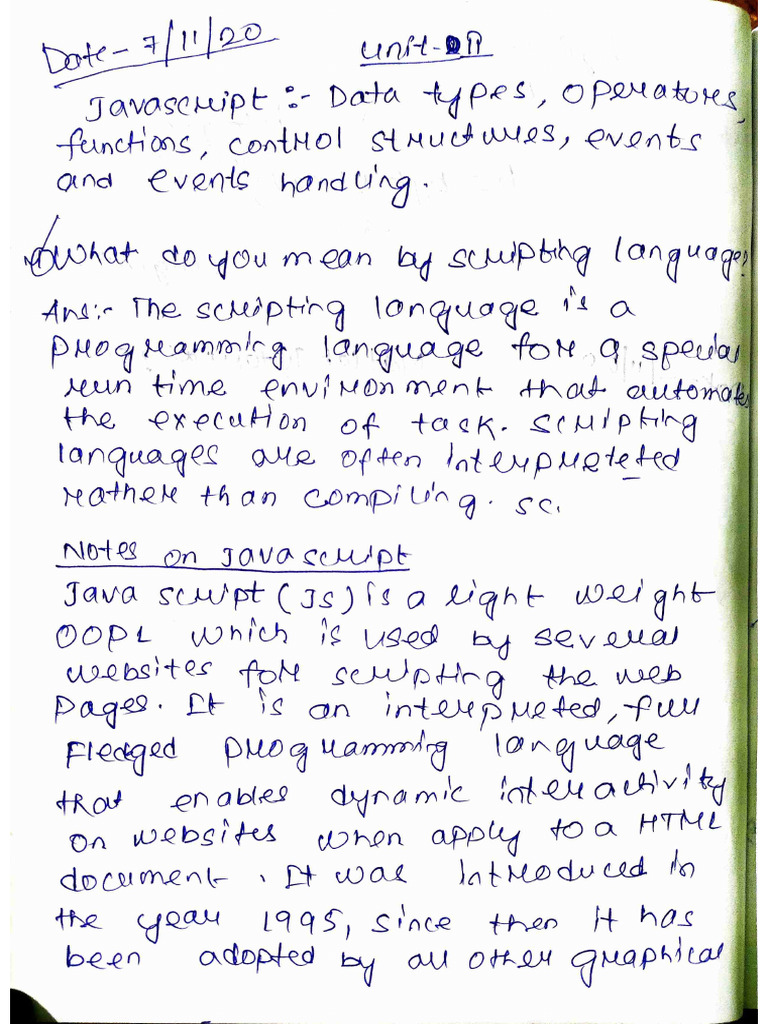 Date- 7/11/20 Unit- II
Javascript :- Data types, operators,
functions, control structures, events
and events handling.
What do you mean by scripting language?
Ans:- The scripting language is a
programming language for a special
run time environment that automates
the execution of task. Scripting
languages are often interpreteted
rather than compiling. sc.
Notes on Javascript
Java script (JS) is a light weight
OOPL which is used by several
websites for scripting the web
pages. It is an interpreted, full
fledged programming language
that enables dynamic interactivity
on websites when apply to a HTML
document. It was introduced in
the year 1995, since then it has
been adopted by all other graphical